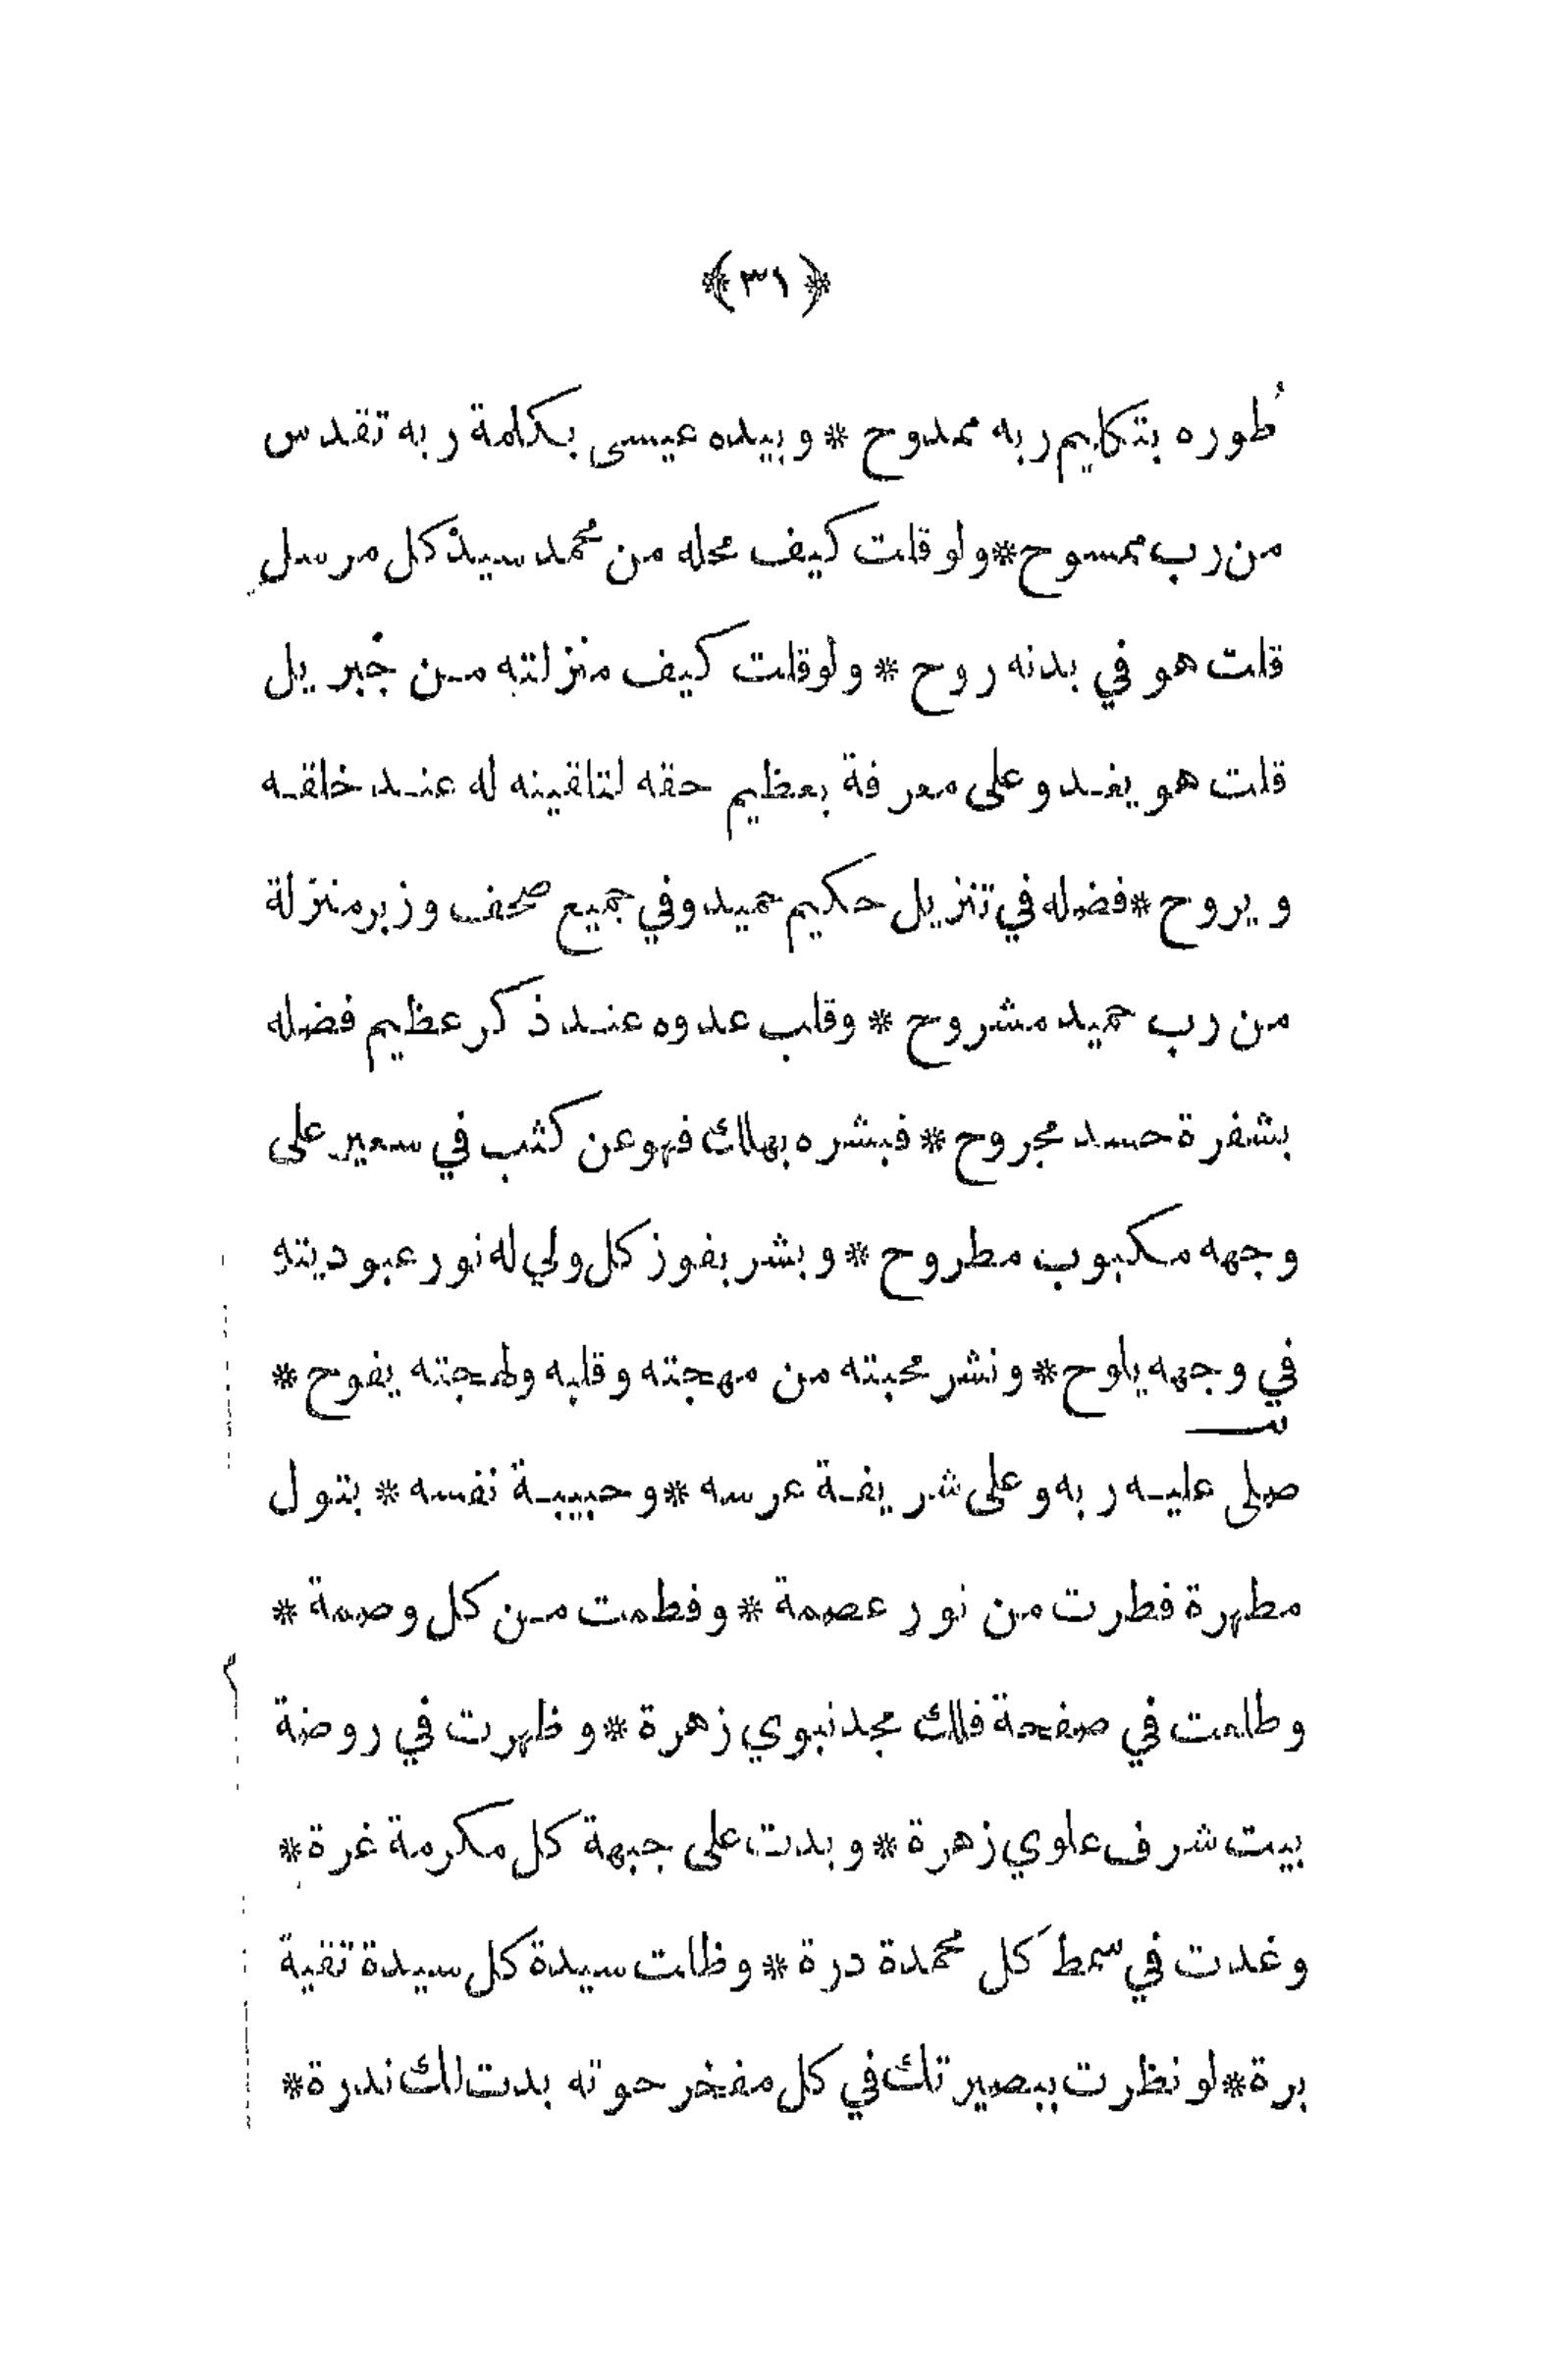 ﴿ ٣١ ﴾
طوره بتكليم ربه ممدوح * وبيده عيسى بكلمة ربه تقدس
من رب ممسوح * ولو قلت كيف محله من محمد سيد كل مرسل
قلت هو في بدنه روح * ولو قلت كيف منزلته من جبريل
قلت هو يغدو على معرفة بعظيم حقه لتلقينه له عند خلقه
ويروح * فضله في تنزيل حكيم حميد وفي جميع صحف وزبر منزلة
من رب حميد مشروح * وقلب عدوه عند ذكر عظيم فضله
بشفرة حسد مجروح * فبشره بهلاك فهو عن كثب في سعير على
وجهه مكبوب مطروح * وبشر بفوز كل ولي له نور عبوديته
في وجهه يلوح * ونشر محبته من مهجته وقلبه ولهجته يفوح *
صلى عليه ربه وعلى شريفة عرسه * وحبيبة نفسه * بتول
مطهرة فطرت من نور عصمة * وفطمت من كل وصمة *
وطلعت في صفحة فلك مجد نبوي زهرة * وظهرت في روضة
بيت شرف علوي زهرة * وبدت على جبهة كل مكرمة غرة *
وغدت في سمط كل محمدة درة * وظلت سيدة كل سيدة تقية
برة * لو نظرت ببصيرتك في كل مفخر حوته بدت لك ندرة *